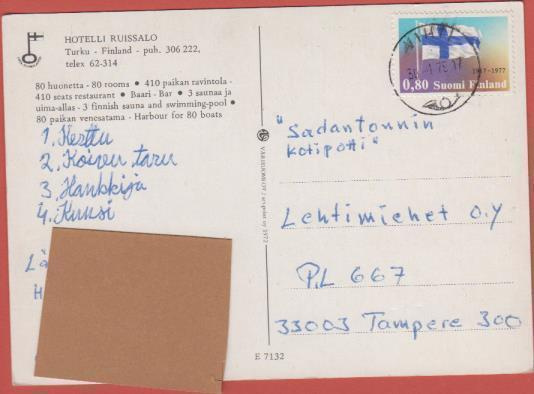 HOTELLI RUISSALO
Turku - Finland - puh. 306 222,
telex 62-314
80 huonetta - 80 rooms • 410 paikan ravintola -
410 seats restaurant • Baari - Bar • 3 saunaa ja
uima-allas - 3 finnish sauna and swimming-pool •
80 paikan venesatama - Harbour for 80 boats
1. Kerttu
2. Koivun taru
3. Hankkija
4. Kuusi
Lä
H
1917-1977
0,80 Suomi Finland
"Sadantonnin
kotipotti"
Lehtimiehet O.Y
P.L 667
33003 Tampere 300
E 7132